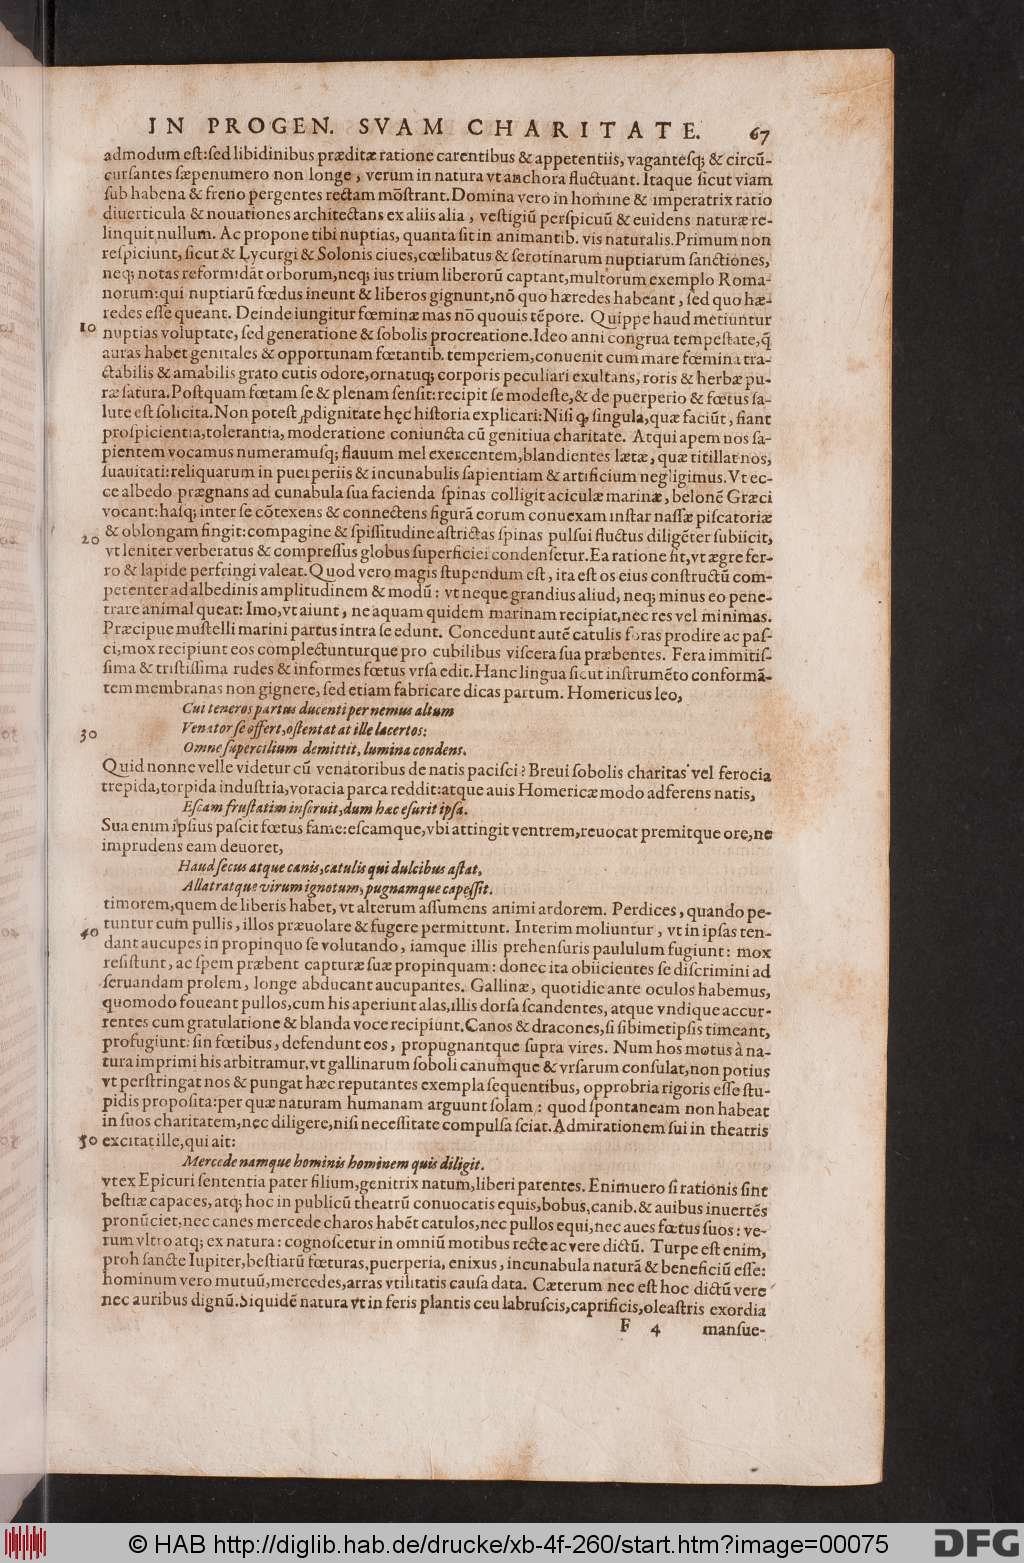 IN PROGEN. SVAM CHARITATE. 67
admodum est:sed libidinibus præditæ ratione carentibus & appetentiis, vagantesq; & circũ-
cursantes sæpenumero non longe, verum in natura vt anchora fluctuant. Itaque sicut viam
sub habena & freno pergentes rectam mõstrant. Domina vero in homine & imperatrix ratio
diuerticula & nouationes architectans ex aliis alia, vestigiũ perspicuũ & euidens naturæ re-
linquit nullum. Ac propone tibi nuptias, quanta sit in animantib. vis naturalis. Primum non
respiciunt, sicut & Lycurgi & Solonis ciues, cœlibatus & serotinarum nuptiarum sanctiones,
neq; notas reformidãt orborum, neq; ius trium liberorũ captant, multorum exemplo Roma-
norum: qui nuptiarũ fœdus ineunt & liberos gignunt, nõ quo hæredes habeant, sed quo hæ-
redes esse queant. Deinde iungitur fœminæ mas nõ quouis tẽpore. Quippe haud metiuntur
10 nuptias voluptate, sed generatione & sobolis procreatione. Ideo anni congrua tempestate, q̃
auras habet genitales & opportunam fœtantib. temperiem, conuenit cum mare fœmina tra-
ctabilis & amabilis grato cutis odore, ornatuq; corporis peculiari exultans, roris & herbæ pu-
ræ satura. Postquam fœtam se & plenam sensit: recipit se modeste, & de puerperio & fœtus sa-
lute est solicita. Non potest ꝓ dignitate hęc historia explicari: Nisi q, singula, quæ faciũt, fiant
prospicientia, tolerantia, moderatione coniuncta cũ genitiua charitate. Atqui apem nos sa-
pientem vocamus numeramusq; flauum mel exercentem, blandientes lætæ, quæ titillat nos,
suauitati: reliquarum in puerperiis & incunabulis sapientiam & artificium negligimus. Vt ec-
ce albedo prægnans ad cunabula sua facienda spinas colligit aciculæ marinæ, belonẽ Græci
vocant: hasq; inter se cõtexens & connectens figurã eorum conuexam instar nassæ piscatoriæ
20 & oblongam fingit: compagine & spissitudine astrictas spinas pulsui fluctus diligẽter subiicit,
vt leniter verberatus & compressus globus superficiei condensetur. Ea ratione fit, vt ægre fer-
ro & lapide perfringi valeat. Quod vero magis stupendum est, ita est os eius constructũ com-
petenter ad albedinis amplitudinem & modũ: vt neque grandius aliud, neq; minus eo pene-
trare animal queat: Imo, vt aiunt, ne aquam quidem marinam recipiat, nec res vel minimas.
Præcipue mustelli marini partus intra se edunt. Concedunt autẽ catulis foras prodire ac pas-
ci, mox recipiunt eos complectunturque pro cubilibus viscera sua præbentes. Fera immitis-
sima & tristissima rudes & informes fœtus vrsa edit. Hanc lingua sicut instrumẽto conformã-
tem membranas non gignere, sed etiam fabricare dicas partum. Homericus leo,
Cui teneros partus ducenti per nemus altum
30 Venator se offert, ostentat at ille lacertos:
Omne supercilium demittit, lumina condens.
Quid nonne velle videtur cũ venatoribus de natis pacisci? Breui sobolis charitas vel ferocia
trepida, torpida industria, voracia parca reddit: atque auis Homericæ modo adferens natis,
Escam frustatim inseruit, dum hæc esurit ipsa.
Sua enim ipsius pascit fœtus fame: escamque, vbi attingit ventrem, reuocat premitque ore, ne
imprudens eam deuoret,
Haud secus atque canis, catulis qui dulcibus astat,
Allatratque virum ignotum, pugnamque capessit.
timorem, quem de liberis habet, vt alterum assumens animi ardorem. Perdices, quando pe-
40 tuntur cum pullis, illos præuolare & fugere permittunt. Interim moliuntur, vt in ipsas ten-
dant aucupes in propinquo se volutando, iamque illis prehensuris paululum fugiunt: mox
resistunt, ac spem præbent capturæ suæ propinquam: donec ita obiicientes se discrimini ad
seruandam prolem, longe abducant aucupantes. Gallinæ, quotidie ante oculos habemus,
quomodo foueant pullos, cum his aperiunt alas, illis dorsa scandentes, atque vndique accur-
rentes cum gratulatione & blanda voce recipiunt. Canos & dracones, si sibimetipsis timeant,
profugiunt: sin fœtibus, defendunt eos, propugnantque supra vires. Num hos motus à na-
tura imprimi his arbitramur, vt gallinarum soboli canumque & vrsarum consulat, non potius
vt perstringat nos & pungat hæc reputantes exempla sequentibus, opprobria rigoris esse stu-
pidis proposita: per quæ naturam humanam arguunt solam: quod spontaneam non habeat
in suos charitatem, nec diligere, nisi necessitate compulsa sciat. Admirationem sui in theatris
50 excitat ille, qui ait:
Mercede namque hominis hominem quis diligit.
vt ex Epicuri sententia pater filium, genitrix natum, liberi parentes. Enimuero si rationis sint
bestiæ capaces, atq; hoc in publicũ theatrũ conuocatis equis, bobus, canib. & auibus inuertẽs
pronũciet, nec canes mercede charos habẽt catulos, nec pullos equi, nec aues fœtus suos: ve-
rum vltro atq; ex natura: cognoscetur in omniũ motibus recte ac vere dictũ. Turpe est enim,
proh sancte Iupiter, bestiarũ fœturas, puerperia, enixus, incunabula naturã & beneficiũ esse:
hominum vero mutuũ, mercedes, arras vtilitatis causa data. Cæterum nec est hoc dictũ vere
nec auribus dignũ. Siquidẽ natura vt in feris plantis ceu labruscis, caprificis, oleastris exordia
F 4 mansue-
© HAB http://diglib.hab.de/drucke/xb-4f-260/start.htm?image=00075
DFG